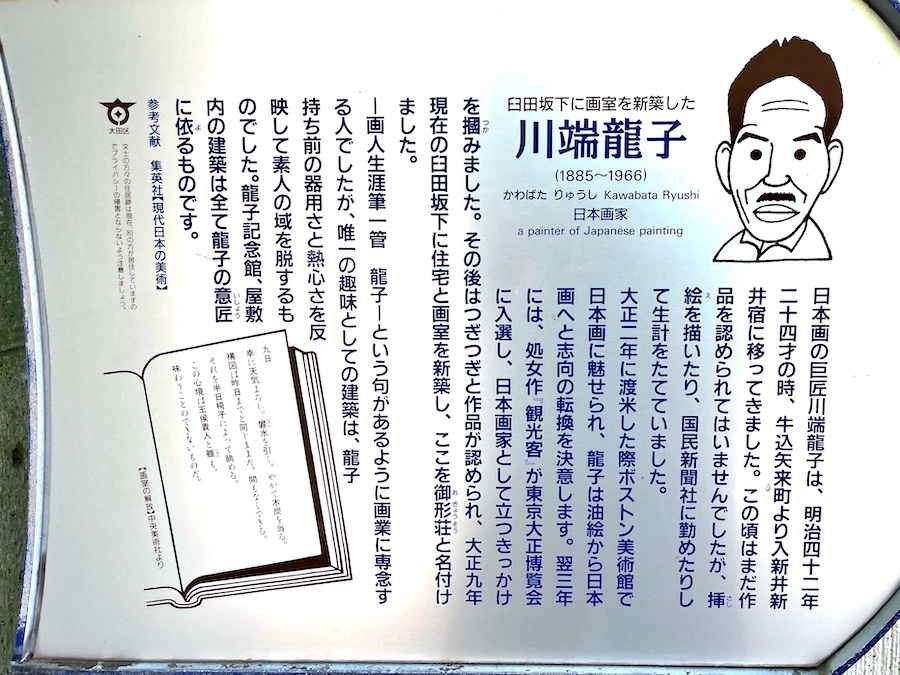 臼田坂下に画室を新築した
川端龍子
(1885～1966)
かわばた りゅうし Kawabata Ryushi
日本画家
a painter of Japanese painting
日本画の巨匠川端龍子は、明治四十二年
二十四才の時、牛込矢来町より入新井新
井宿に移ってきました。この頃はまだ作
品を認められてはいませんでしたが、挿
絵を描いたり、国民新聞社に勤めたりし
て生計をたてていました。
大正二年に渡米した際ボストン美術館で
日本画に魅せられ、龍子は油絵から日本
画へと志向の転換を決意します。翌三年
には、処女作『観光客』が東京大正博覧会
に入選し、日本画家として立つきっかけ
を摑みました。その後はつぎつぎと作品が認められ、大正九年
現在の臼田坂下に住宅と画室を新築し、ここを御形荘と名付け
ました。
―画人生涯筆一管 龍子―という句があるように画業に専念す
る人でしたが、唯一の趣味としての建築は、龍子
持ち前の器用さと熱心さを反
映して素人の域を脱するも
のでした。龍子記念館、屋敷
内の建築は全て龍子の意匠
に依るものです。
参考文献 集英社【現代日本の美術】
大田区
文士の方々の住居跡は現在、別の方が居住していますの
でプライバシーの侵害とならないよう注意しましょう。
九日
幸に天気よろし。礬水を引く。やがて木炭を当る。
構図は昨日までと同じまゝだ。間もなくできる。
それを半日椅子によって眺める。
この心境は王侯貴人と雖も、
味わうことのできないものだ。
【画室の解放】中央美術社より